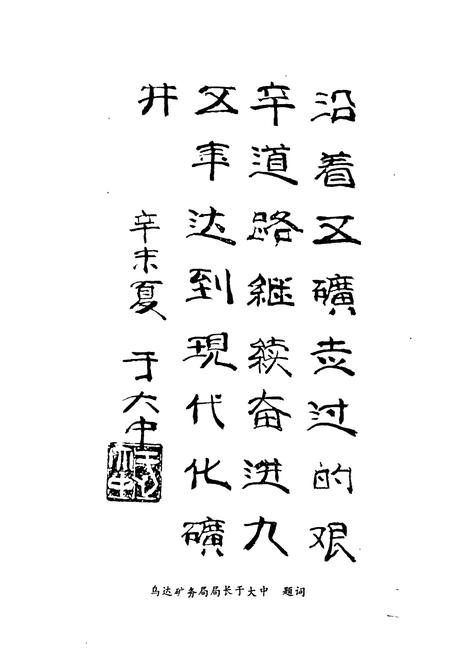 沿着五礦走过的艰
辛道路继续奋进九
五年达到現代化礦
井
辛未夏 于大中
乌达矿务局局长于大中 题词